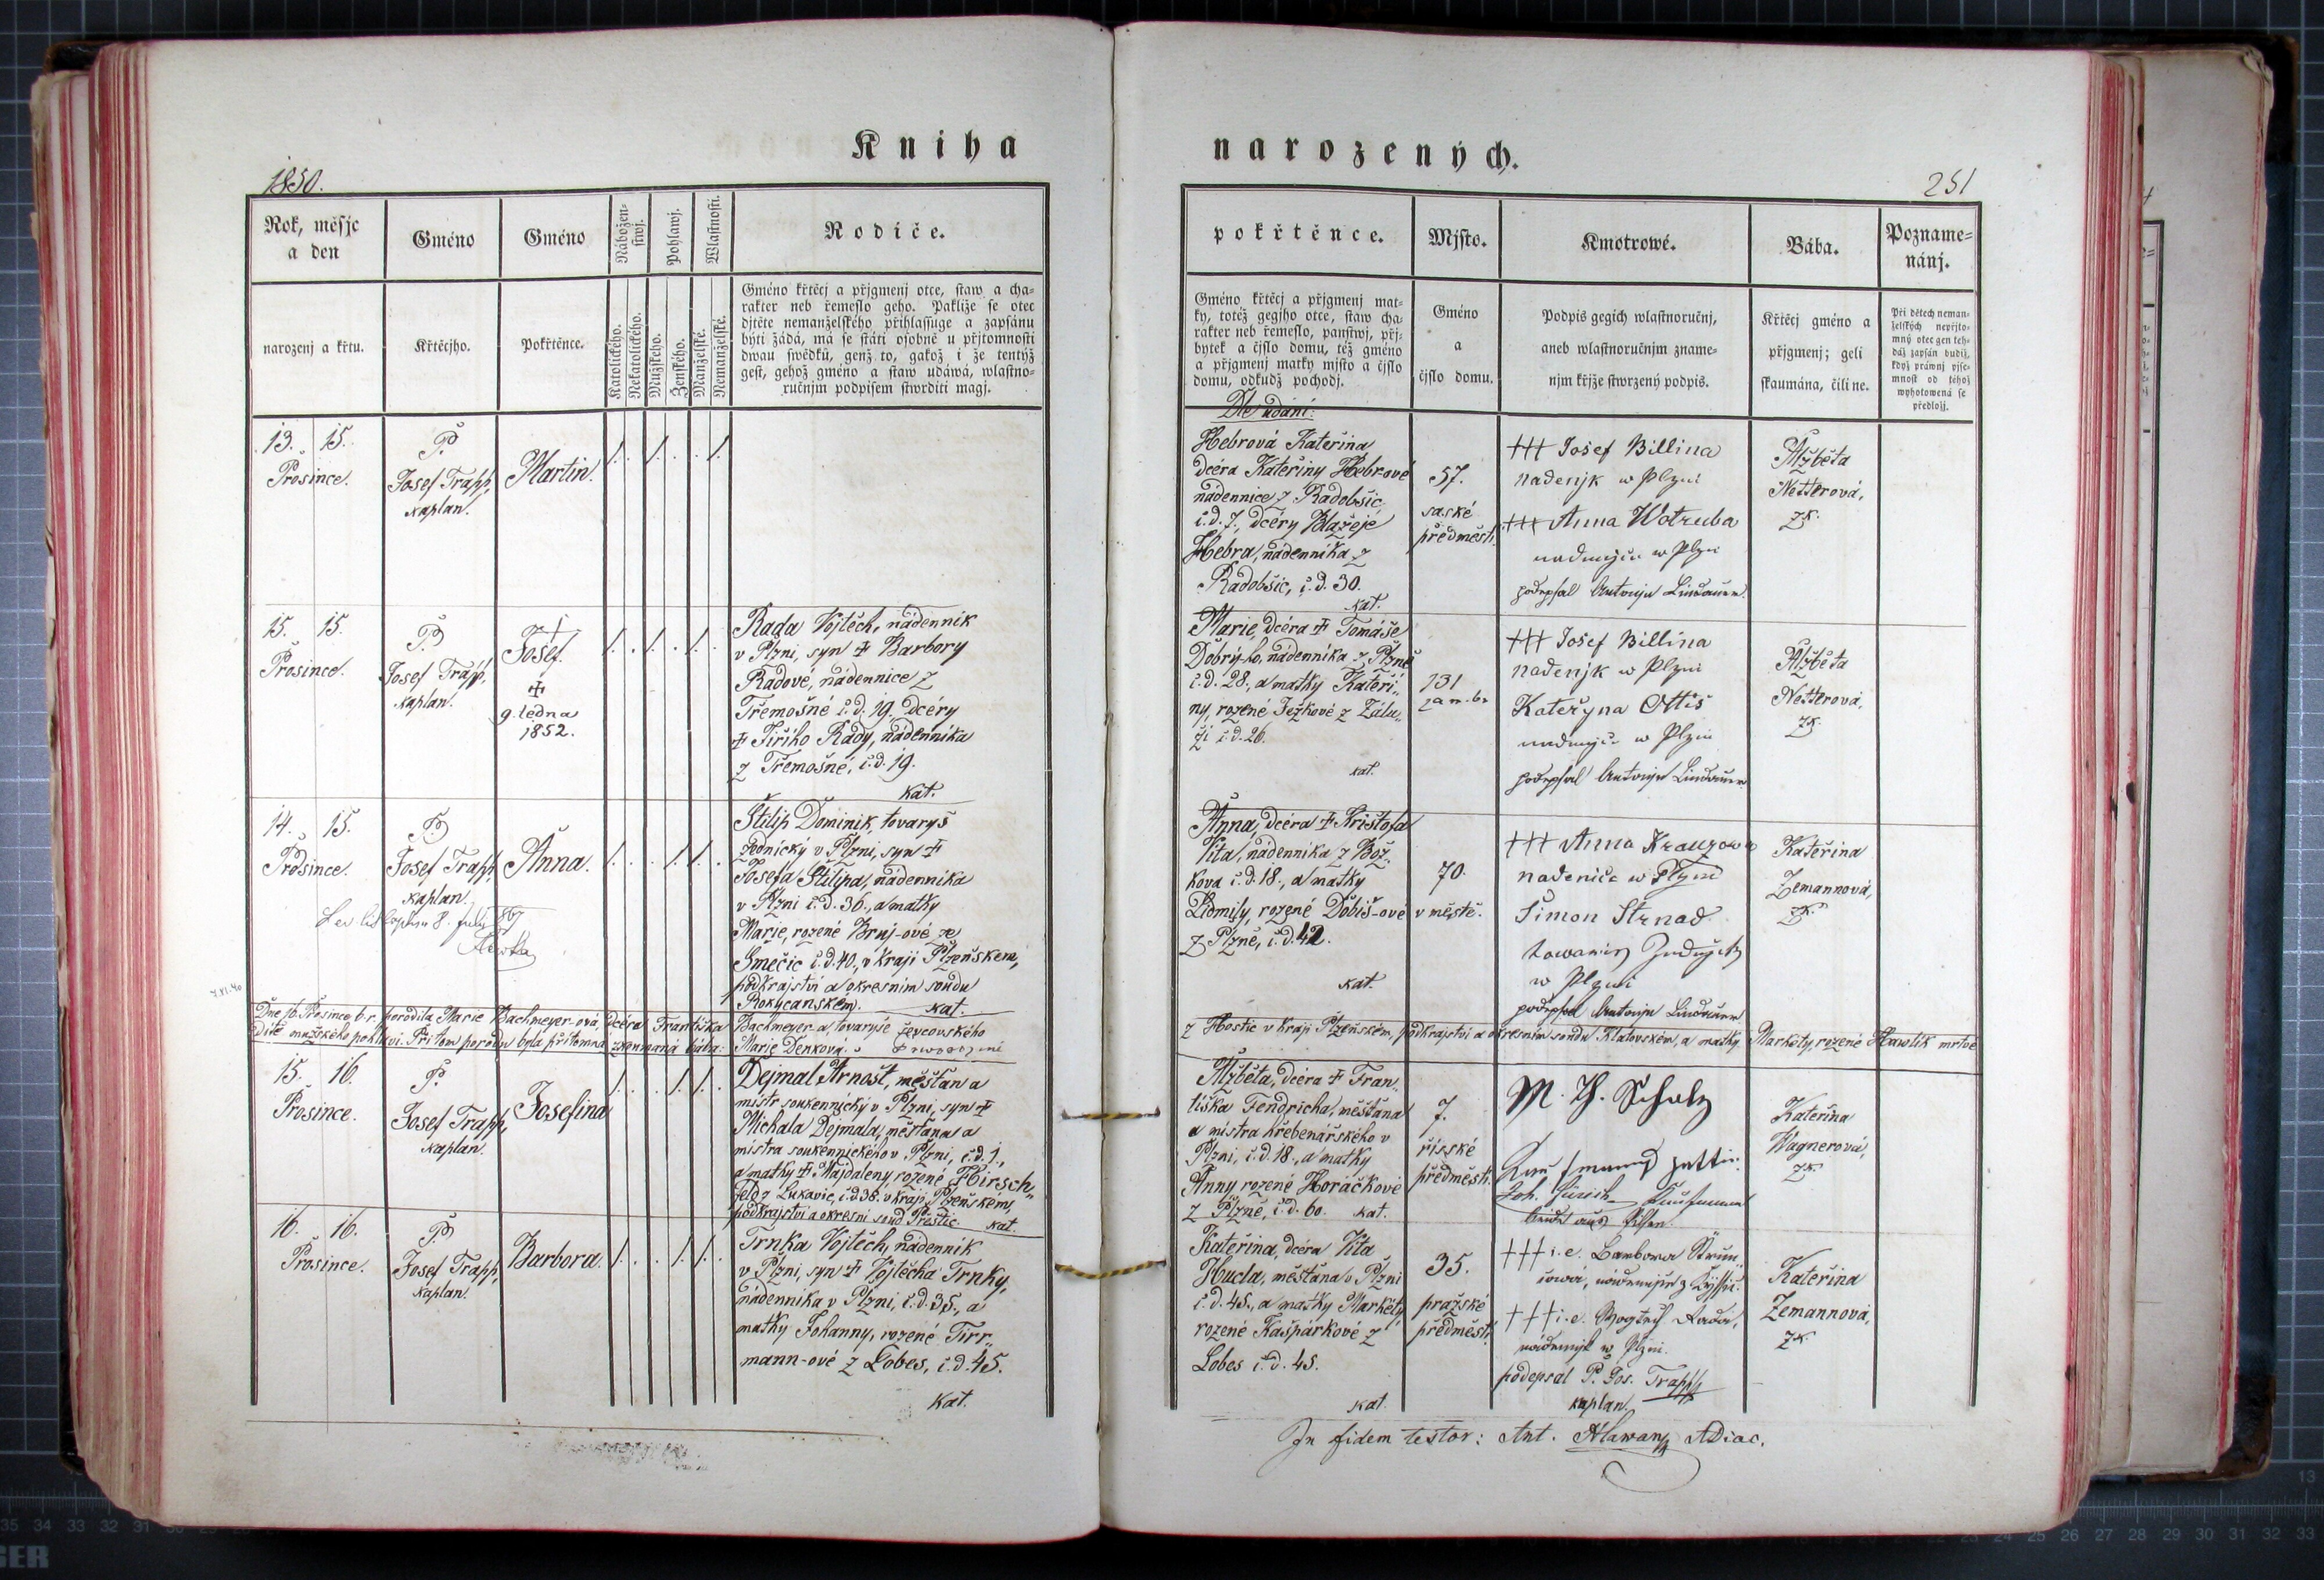 Kniha
1850.
Rok, měsjc
a den
narozenj a křtu.
Gméno
Křtěcjho.
Gméno
Pokřtěnce.
Nábožen-
stwj.
Pohlawj.
Wlastnosti.
Katolického.
Nekatolického.
Mužského.
Ženského.
Manželské.
Nemanželské.
Rodiče.
Gméno křtěcj a přjgmenj otce, staw a cha-
rakter neb řemeslo geho. Pakliže se otec
djtěte nemanželského přihlassuge a zapsánu
býti žádá, má se státi osobně u přjtomnosti
dwau swědků, genž to, gakož i že tentýž
gest, gehož gméno a staw udáwá, wlastno-
ručnjm podpisem stwrditi magj.
13. 15.
Prosince.
P.
Josef Trapp,
kaplan.
Martin.
15. 15.
Prosince.
P.
Josef Trapp,
kaplan.
Josef.
9. ledna
1852.
Rada Vojtěch, nádenník
v Plzni, syn † Barbory
Radové, nádennice z
Třemošné č.d. 19., dcéry
† Jiřího Rady, nádenníka
z Třemošné, č.d. 19.
kat.
14. 15.
Prosince.
P.
Josef Trapp,
kaplan.
Anna.
Štilip Dominik, tovaryš
zednický v Plzni, syn †
Josefa Štilipa, nádenníka
v Plzni č.d. 36., a matky
Marie, rozené Bruj-ové ze
Smečic č.d. 40., v kraji Plzeňském,
podkrajství a okresním soudu
Rokycanském. kat.
4.XI.40
Dne 16. Prosince b.r. porodila Marie Bachmeyer-ová, dcéra Františka Bachmeyer-a, tovaryše ševcovského
dítě mužského pohlaví. Při tom porodu byla přítomná zkoumaná bába: Marie Denková.
15. 16.
Prosince.
P.
Josef Trapp,
kaplan.
Josefina
Dejmal Arnošt, měšťan a
mistr soukennický v Plzni, syn †
Michala Dejmala, měšťana a
mistra soukennického v Plzni, č.d. 1.,
a matky †. Majdaleny, rozené Hirsch-
feld z Lukavic, č.d 38. v kraji Plzeňském,
podkrajství a okresní soud Přeštic. kat.
16. 16.
Prosince.
P.
Josef Trapp,
kaplan.
Barbora.
Trnka Vojtěch, nádenník
v Plzni, syn † Vojtěcha Trnky,
nádenníka v Plzni, č.d. 35., a
matky Johanny, rozené Tirr-
mann-ové z Lobes, č.d. 45.
kat.
narozených.
251
pokřtěnce.
Gméno křtěcj a přjgmenj mat-
ky, totéž gegjho otce, staw cha-
rakter neb řemeslo, panstwj, přj-
bytek a čjslo domu, též gméno
a přjgmenj matky mjsto a čjslo
domu, odkudž pochodj.
Mjsto.
Gméno
a
čjslo domu.
Kmotrowé.
Podpis gegich wlastnoručnj,
aneb wlastnoručnjm zname-
njm křjže stwrzený podpis.
Bába.
Křtěcj gméno a
přjgmenj; geli
skaumána, čili ne.
Pozname-
nánj.
Při dětech neman-
želských nepřjto-
mný otec gen teh-
dáž zapsán budiž,
když práwnj pjse-
mnost od téhož
wyhotowená se
předložj.
Dle udání:
Hebrová Kateřina,
dcéra Kateřiny Hebrové
nádennice z Radobšic,
č.d. 7., dcéry Blažeje
Hebra, nádenníka z
Radobšic, č.d. 30.
kat.
57.
saské
předměstí.
+++ Josef Billina
nadenjk w Plzni
+++ Anna Wotruba
podepsal Antonjn Lindauer
Alžběta
Netterová,
zk.
Marie, dcéra † Tomáše
Dobrý-ho, nádenníka z Plzně
č.d. 28., a matky Kateři-
ny, rozené Ježkové z Zálu-
ží č.d. 26.
kat.
131
+++ Josef Billina
nadenjk w Plzni
Kateřyna Ottis
podepsal Antonjn Lindauer
Alžběta
Netterová,
zk.
Anna, dcéra † Krištofa
Víta, nádenníka z Bož-
kova č.d. 18., a matky
Lidmily, rozené Dobiš-ové
z Plzně, č.d. 42.
kat.
70.
v městě.
+++ Anna Krauzowa
nadenice w Plzni
Šimon Strnad
w Plzni
podepsal Antonjn Lindauer
Kateřina
Zemannová,
zk.
z Hostic v kraji Plzeňském, podkrajství a okresním soudu Klatovském, a matky Markéty, rozené Hawlik mrtvé
Alžběta, dcéra † Fran-
tiška Fendricha, měšťana
a mistra hřebenářského v
Plzni, č.d. 18., a matky
Anny rozené Horáčkové
z Plzně, č.d. 60. kat.
7.
říšské
předměstí.
M. Th. Scholz
Kateřina
Wagnerová,
zk.
Kateřina, dcéra Víta
Hucla, měšťana v Plzni
č.d. 45., a matky Markéty,
rozené Kašpárkové z
Lobes č.d. 45.
kat.
35.
pražské
předměstí.
podepsal P. Jos. Trapp
kaplan.
Kateřina
Zemannová,
zk.
In fidem testor: Ant. Hlawan ADiac.